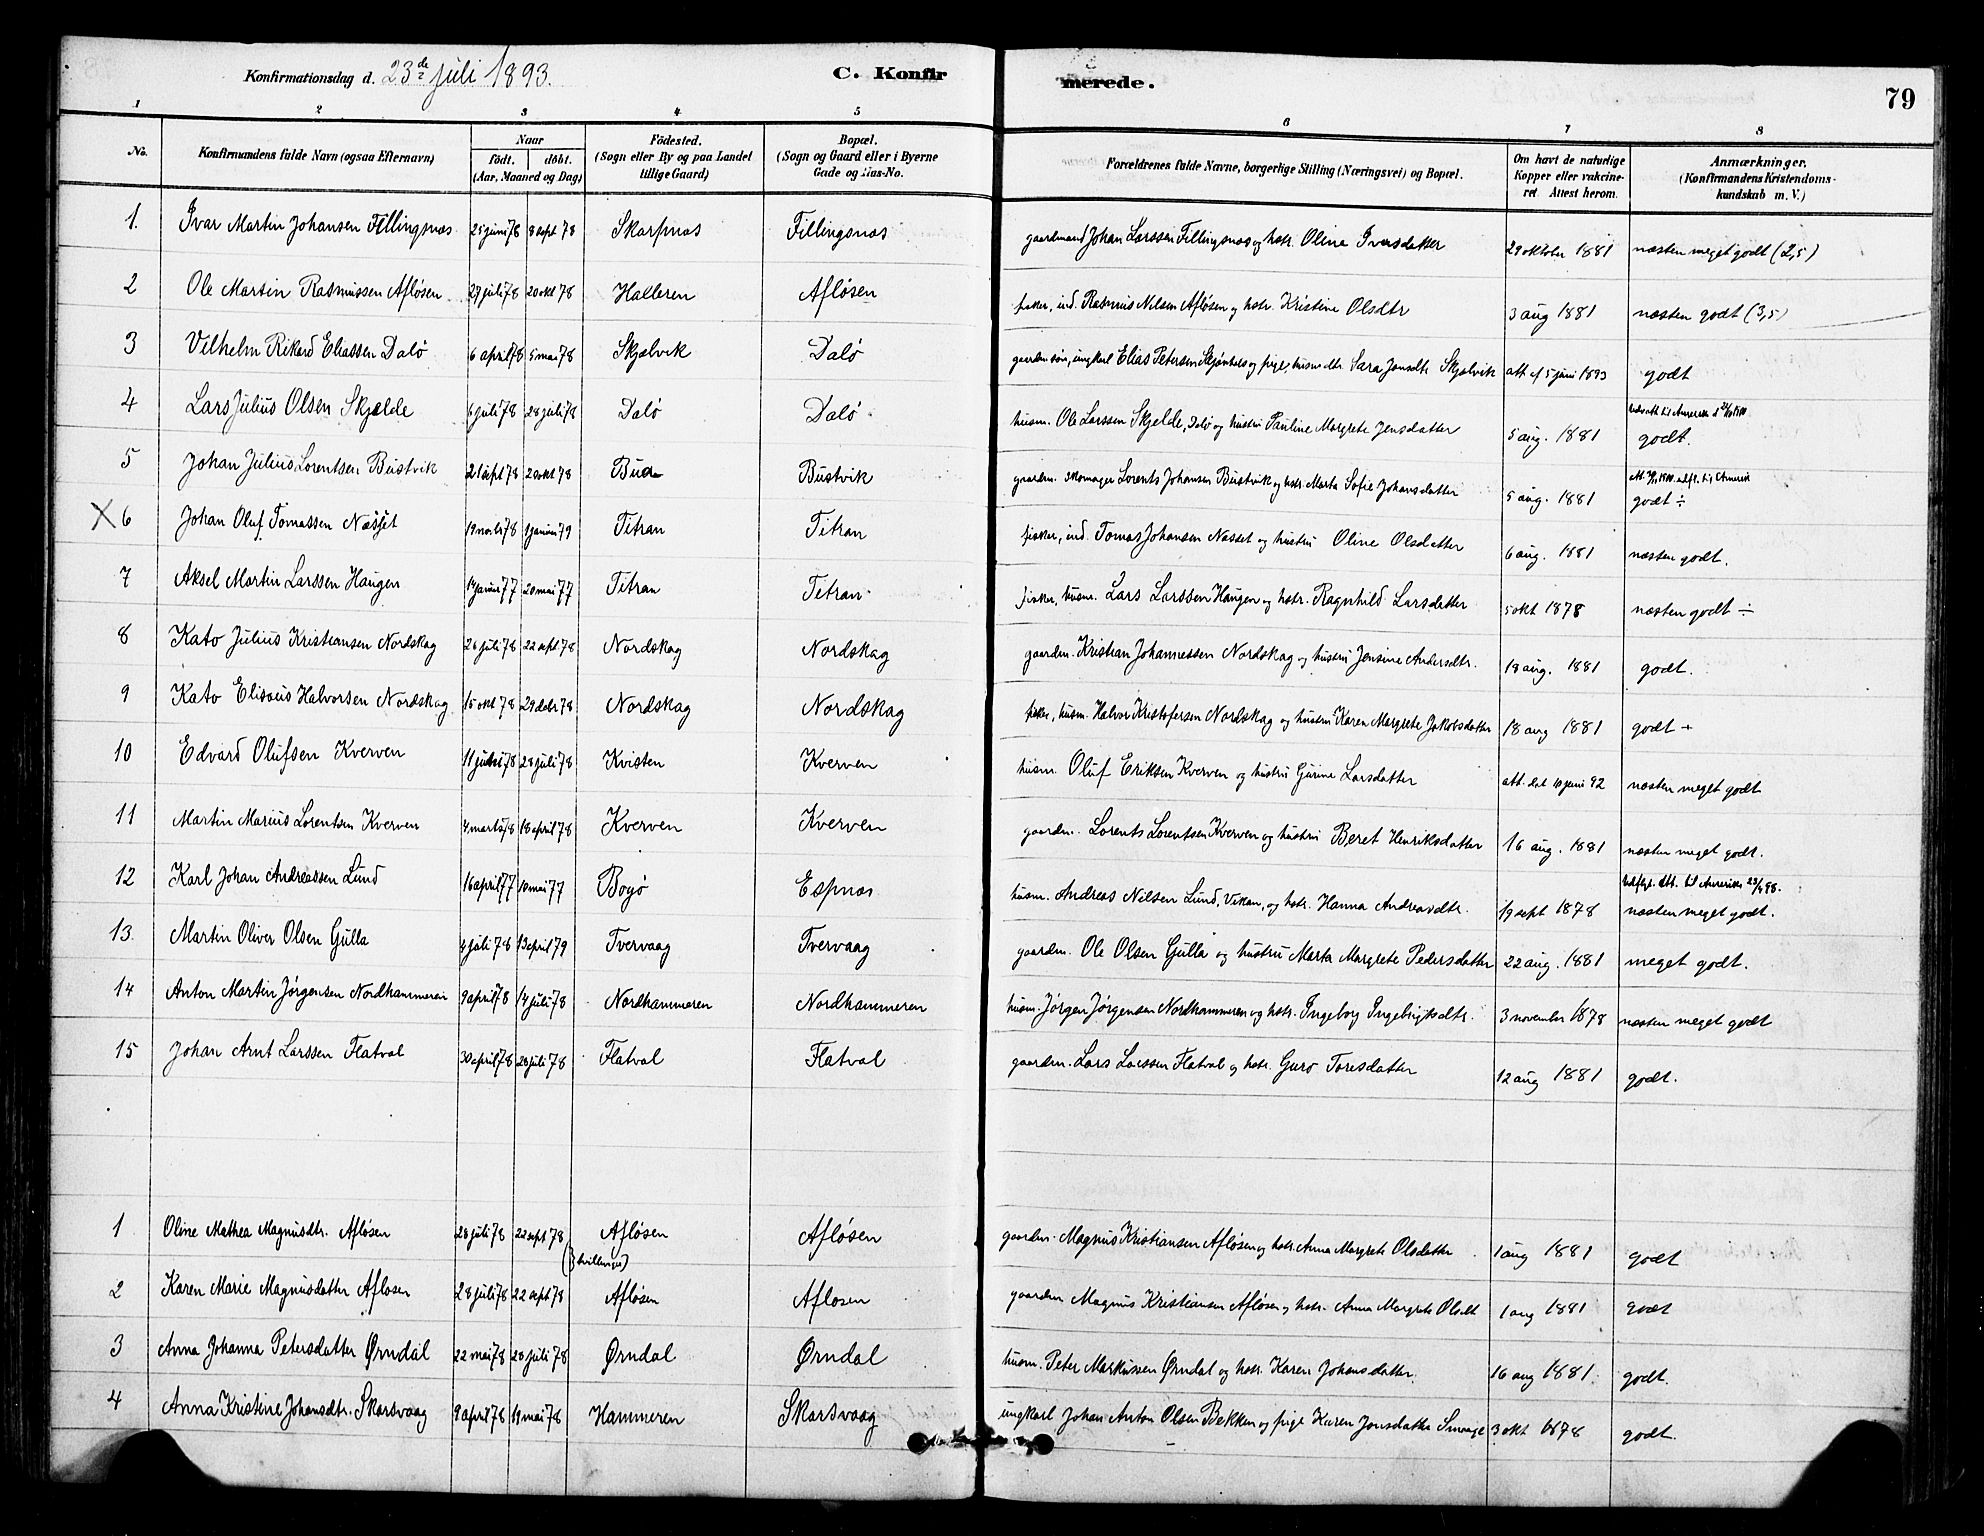 Konfirmationsdag d. 23de juli 1893.
C. Konfirmerede.
79
1 2 3 4 5 6 7 8
No. Konfirmandens fulde Navn (ogsaa Efternavn) Naar født. døbt. (Aar, Maaned og Dag) Fødested. (Sogn eller By og paa Landet tillige Gaard) Bopæl. (Sogn og Gaard eller i Byerne Gade og Hus-No. Forældrenes fulde Navne, borgerlige Stilling (Næringsvei) og Bopæl. Om havt de naturlige Kopper eller vakcineret Attest herom. Anmærkninger. (Konfirmandens Kristendomskundskab m. V.)
1. Ivar Martin Johansen Fillingsnæs 25 juni 78 8 sept 78 Skarpnæs Fillingsnæs gaardmand Johan Larssen Fillingsnæs og hstr. Oline Iversdatter 29 oktober 1881 næsten meget godt (2,5)
2 Ole Martin Rasmussen Afløsen 27 juli 78 20 okt 78 Halleren Afløsen fisker, ind. Rasmus Nilsen Afløsen og hstr. Kristine Olsdtr 3 aug 1881 næsten godt (3,5)
3 Vilhelm Rikard Eliassen Dalø 6 april 78 5 mai 78 Skjælvik Dalø gaardm søn, ungkarl Elias Petersen og pige, husm dtr. Sara Jonsdtr Skjælvik att. af 5 juni 1893 godt
4 Lars Julius Olsen Skjelde 6 juli 78 28 juli 78 Dalø Dalø husm. Ole Larssen Skjelde, Dalø og hustru Pauline Margrete Jensdatter 5 aug. 1881 godt.
5 Johan Julius Lorentsen Bustvik 21 sept 78 20 okt 78 Bua Bustvik gaardm. skomager Lorents Johansen Bustvik og hstr. Marta Sofie Johansdatter 5 aug. 1881 godt ÷
X 6 Johan Oluf Tomassen Næsset 19 novbr 78 1 januar 79 Titran Titran fisker, ind. Tomas Johansen Næsset og hustru Oline Olsdatter 6 aug. 1881 næsten godt.
7 Aksel Martin Larssen Haugen 14 januar 77 20 mai 77 Titran Titran fisker, husm. Lars Larssen Haugen og hstr. Ragnhild Larsdatter 5 okt 1878 næsten godt ÷
8 Kato Julius Kristiansen Nordskag 26 juli 78 22 sept 78 Nordskag Nordskag gaardm. Kristian Johannessen Nordskag og hustru Jensine Andersdtr. 18 aug. 1881 godt.
9 Kato Elisæus Halvorsen Nordskag 15 okt 78 29 debr 78 Nordskag Nordskag fisker, husm. Halvor Kristofersen Nordskag og hustru Karen Margrete Jakobsdatter 18 aug 1881 godt +
10 Edvard Olufsen Kverven 11 juli 78 28 juli 78 Kvisten Kverven husm. Oluf Eriksen Kverven og hustru Gurine Larsdatter att. dat 10 juni 92 næsten meget godt
11 Martin Marius Lorentsen Kverven 4 marts 78 18 april 78 Kverven Kverven gaardm. Lorents Lorentsen Kverven og hustru Beret Henriksdatter 16 aug. 1881 næsten meget godt.
12 Karl Johan Andreassen Lund 16 april 77 10 mai 77 Bogø Espnæs husm. Andreas Nilsen Lund, Vikan, og hstr. Hanna Andreasdtr. 19 sept 1878 næsten meget godt.
13. Martin Oliver Olsen Gulla 4 juli 78 13 april 79 Tvervaag Tvervaag gaardm. Ole Olsen Gulla og hustru Marta Margrete Pedersdatter 22 aug. 1881 meget godt.
14 Anton Martin Jørgensen Nordhammeren 9 april 78 14 juli 78 Nordhammeren Nordhammeren husm. Jørgen Jørgensen Nordhammeren og hstr. Ingeborg Ingebrigtsdtr. 3 november 1878 næsten meget godt
15 Johan Arnt Larssen Flatval 30 april 78 28 juli 78 Flatval Flatval gaardm. Lars Larssen Flatval og hstr. Guro Toresdatter 12 aug 1881 godt.
1 Oline Mathea Magnusdtr. Afløsen 28 juli 78 22 sept 78 Afløsen Afløsen gaardm. Magnus Kristiansen Afløsen og hstr. Anna Margrete Olsdatter 1 aug 1881 godt
(tvillinger)
2 Karen Marie Magnusdatter Afløsen 28 juli 78 22 sept 78 Afløsen Afløsen gaardm Magnus Kristiansen Afløsen og hstr. Anna Margrete Olsdt 1 aug 1881 godt
3 Anna Johanna Petersdatter Ørndal 22 mai 78 28 juli 78 Ørndal Ørndal husm. Peter Markussen Ørndal og hstr. Karen Johansdatter. 16 aug 1881. godt.
4 Anna Kristine Johansdtr. Skarsvaag 9 april 78 19 mai 78 Hammeren Skarsvaag ungkarl Johan Anton Olsen Bekken og pige Karen Jonsdatter Smaage 3 okt 1878 godt.